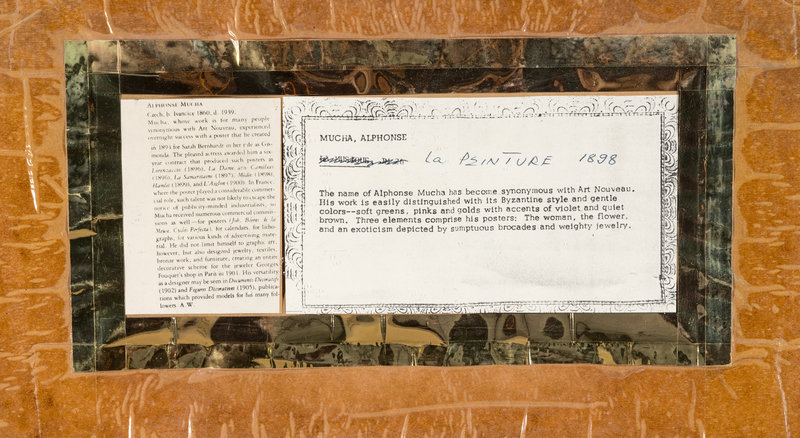 ALPHONSE MUCHA
Czech, b. Ivančice 1860, d. 1939.
Mucha, whose work is for many people
synonymous with Art Nouveau, experienced
overnight success with a poster that he created
in 1894 for Sarah Bernhardt in her role as Gis-
monda. The pleased actress awarded him a six-
year contract that produced such posters as
Lorenzaccio (1896), La Dame aux Camélias
(1896), La Samaritaine (1897), Médée (1898),
Hamlet (1899), and L'Aiglon (1900). In France,
where the poster played a considerable commer-
cial role, such talent was not likely to escape the
notice of publicity-minded industrialists, so
Mucha received numerous commercial commis-
sions as well—for posters (Job, Bières de la
Meuse, Cycles Perfecta), for calendars, for litho-
graphs, for various kinds of advertising mate-
rial. He did not limit himself to graphic art,
however, but also designed jewelry, textiles,
bronze work, and furniture, creating an entire
decorative scheme for the jeweler Georges
Fouquet's shop in Paris in 1901. His versatility
as a designer may be seen in Documents Décoratifs
(1902) and Figures Décoratives (1905), publica-
tions which provided models for his many fol-
lowers. A.W.
MUCHA, ALPHONSE
La PSINTURE 1898
The name of Alphonse Mucha has become synonymous with Art Nouveau.
His work is easily distinguished with its Byzantine style and gentle
colors--soft greens, pinks and golds with accents of violet and quiet
brown. Three elements comprise his posters: The woman, the flower,
and an exoticism depicted by sumptuous brocades and weighty jewelry.